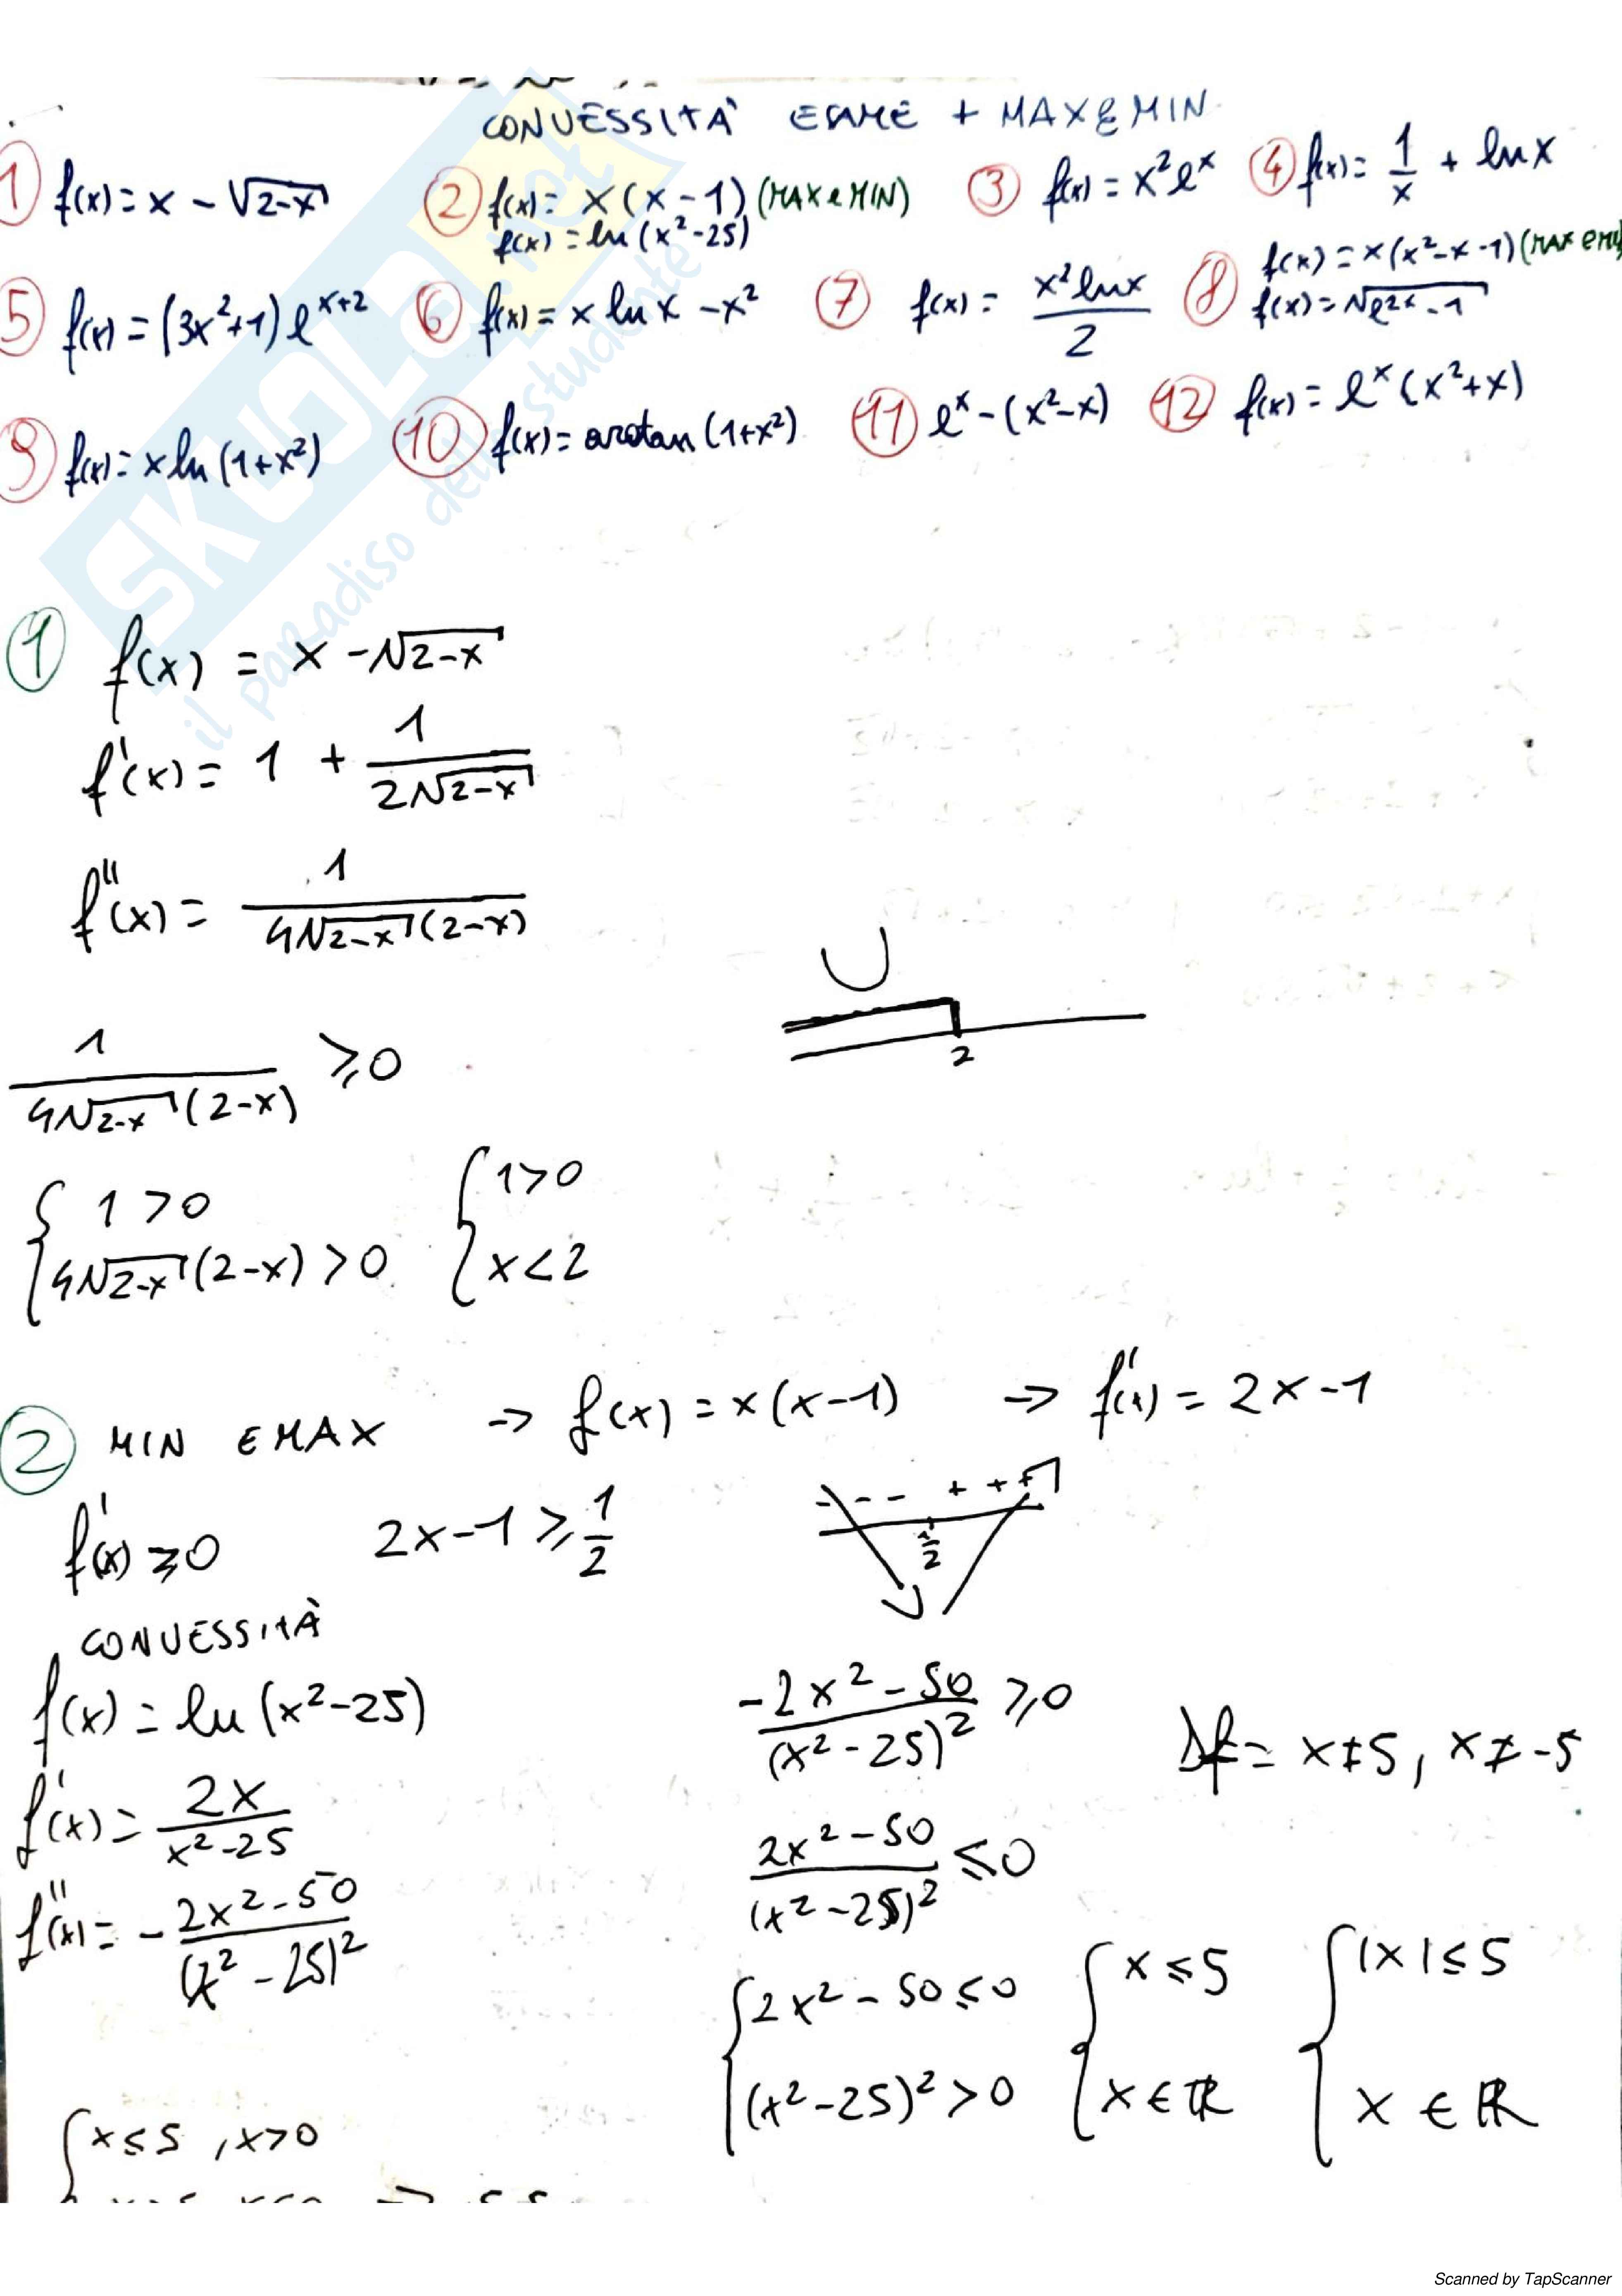 CONVESSITÀ ESAME + MAX E MIN
① f(x) = x - √(2-x) ② f(x) = x(x-1) (MAX e MIN) ③ f(x) = x²eˣ ④ f(x) = 1/x + ln x
f(x) = ln(x²-25)
f(x) = x(x²-x-1) (MAX e MIN
⑤ f(x) = (3x²+1)e^(x+2) ⑥ f(x) = x ln x - x² ⑦ f(x) = x² ln x / 2 ⑧ f(x) = √(e^(2x)-1)
⑨ f(x) = x ln(1+x²) ⑩ f(x) = arctan(1+x²) ⑪ eˣ - (x²-x) ⑫ f(x) = eˣ(x²+x)
SKUOLA.net
il paradiso dello studente
① f(x) = x - √(2-x)
f'(x) = 1 + 1/(2√(2-x))
f''(x) = 1/(4√(2-x)(2-x))
2
1/(4√(2-x)(2-x)) ≥ 0
{ 1 > 0 { 1 > 0
4√(2-x)(2-x) > 0 x < 2
② MIN E MAX → f(x) = x(x-1) → f'(x) = 2x-1
- - - + + +
1/2
f'(x) ≥ 0 2x-1 ≥ 1/2
CONVESSITÀ
f(x) = ln(x²-25)
f'(x) = 2x/(x²-25)
f''(x) = - (2x²-50)/(x²-25)²
-(2x²-50)/(x²-25)² ≥ 0 Df = x ≠ 5, x ≠ -5
(2x²-50)/(x²-25)² ≤ 0
{ 2x²-50 ≤ 0 { x ≤ 5 { |x| ≤ 5
(x²-25)² > 0 x ∈ ℝ x ∈ ℝ
{ x ≤ 5, x > 0
Scanned by TapScanner